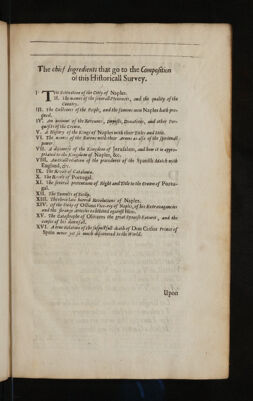 The chief Ingredients that go to the Composition
of this Historicall Survey.
I. The Situation of the Citty of Naples.
II. The names of the severall Provinces, and the quality of the
Country.
III. The Customes of the Peeple, and the famous men Naples hath pro-
duced.
IV. An account of the Revenues, Imposts, Donatives, and other Per-
quisits of the Crown.
V. A History of the Kings of Naples with their Titles and Issue.
VI. The names of the Barons with their Armes as also of the Spirituall
power.
VII. A discourse of the Kingdom of Jerusalem, and how it is appro-
priated to the Kingdom of Naples, &c.
VIII. And relation of the procedures of the Spanish Match with
England, &c.
IX. The Revolt of Catalonia.
X. The Revolt of Portugal.
XI. The severall pretentions of Right and Title to the Crown of Portu-
gal.
XII. The Tumults of Sicily.
XIII. The horrid Revolutions of Naples.
XIV. Of the Duke of Ossuna Vice-roy of Naples, of his Extravagancies
and the strange Articles exhibited against him.
XV. The Catastrophe of Olivares the great Spanish Favorit, and the
causes of his downfall.
XVI. A true Relation of the death of Don Carlos Prince of
Spain never yet so much discovered to the World.
Upon